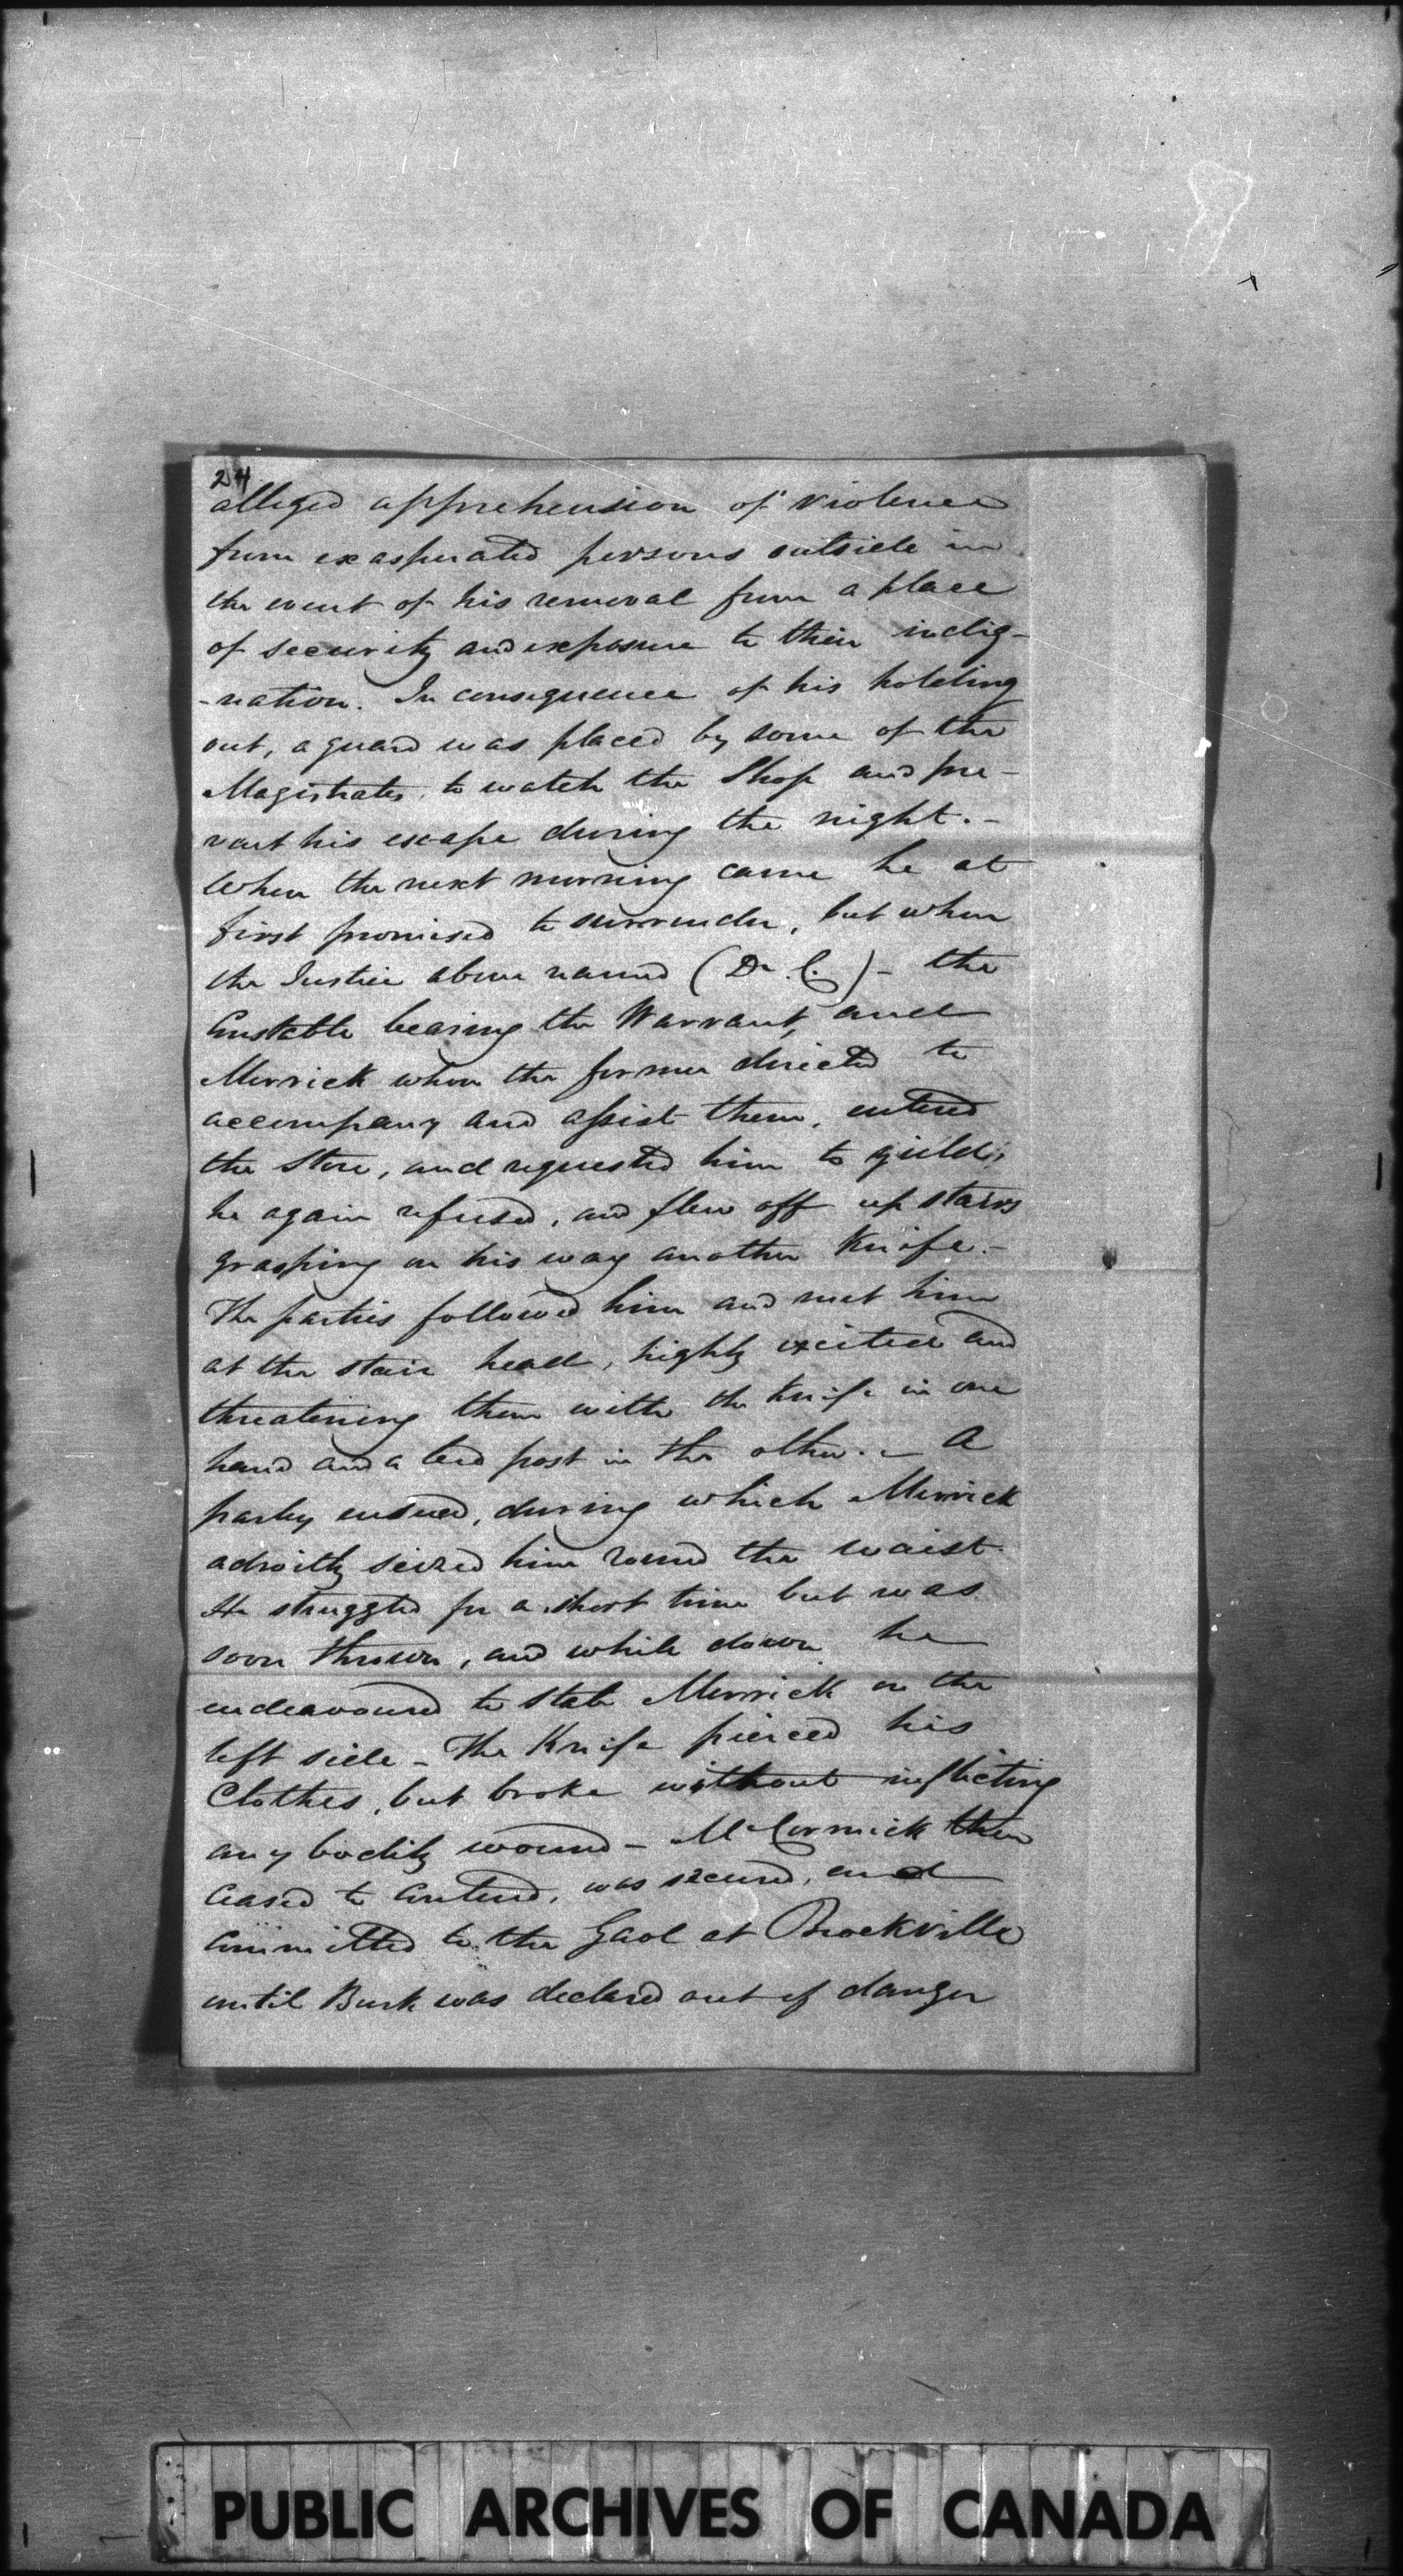 24
alleged apprehension of violence
from exasperated persons outside in
the event of his removal from a place
of security and exposure to their indig-
-nation. In consequence of his holding
out, a guard was placed by some of the
Magistrates, to watch the Shop and pre-
vent his escape during the night. -
When the next morning came he at
first promised to surrender, but when
the Justice above named (Dr. C.) - the
Constable bearing the Warrant, and
Merrick whom the former directed to
accompany and assist them, entered
the Store, and requested him to yield,
he again refused, and flew off up stairs
grasping on his way another Knife. -
The parties followed him and met him
at the stair head, highly excited and
threatening them with the knife in one
hand and a bed post in the other. - A
parley ensued, during which Merrick
adroitly seized him round the waist.
He struggled for a short time but was
soon thrown, and while down he
endeavoured to stab Merrick on the
left side - The Knife pierced his
Clothes, but broke without inflicting
any bodily wound - McCormick then
ceased to contend, was secured, and
committed to the Gaol at Brockville
until Burk was declared out of danger
PUBLIC ARCHIVES OF CANADA